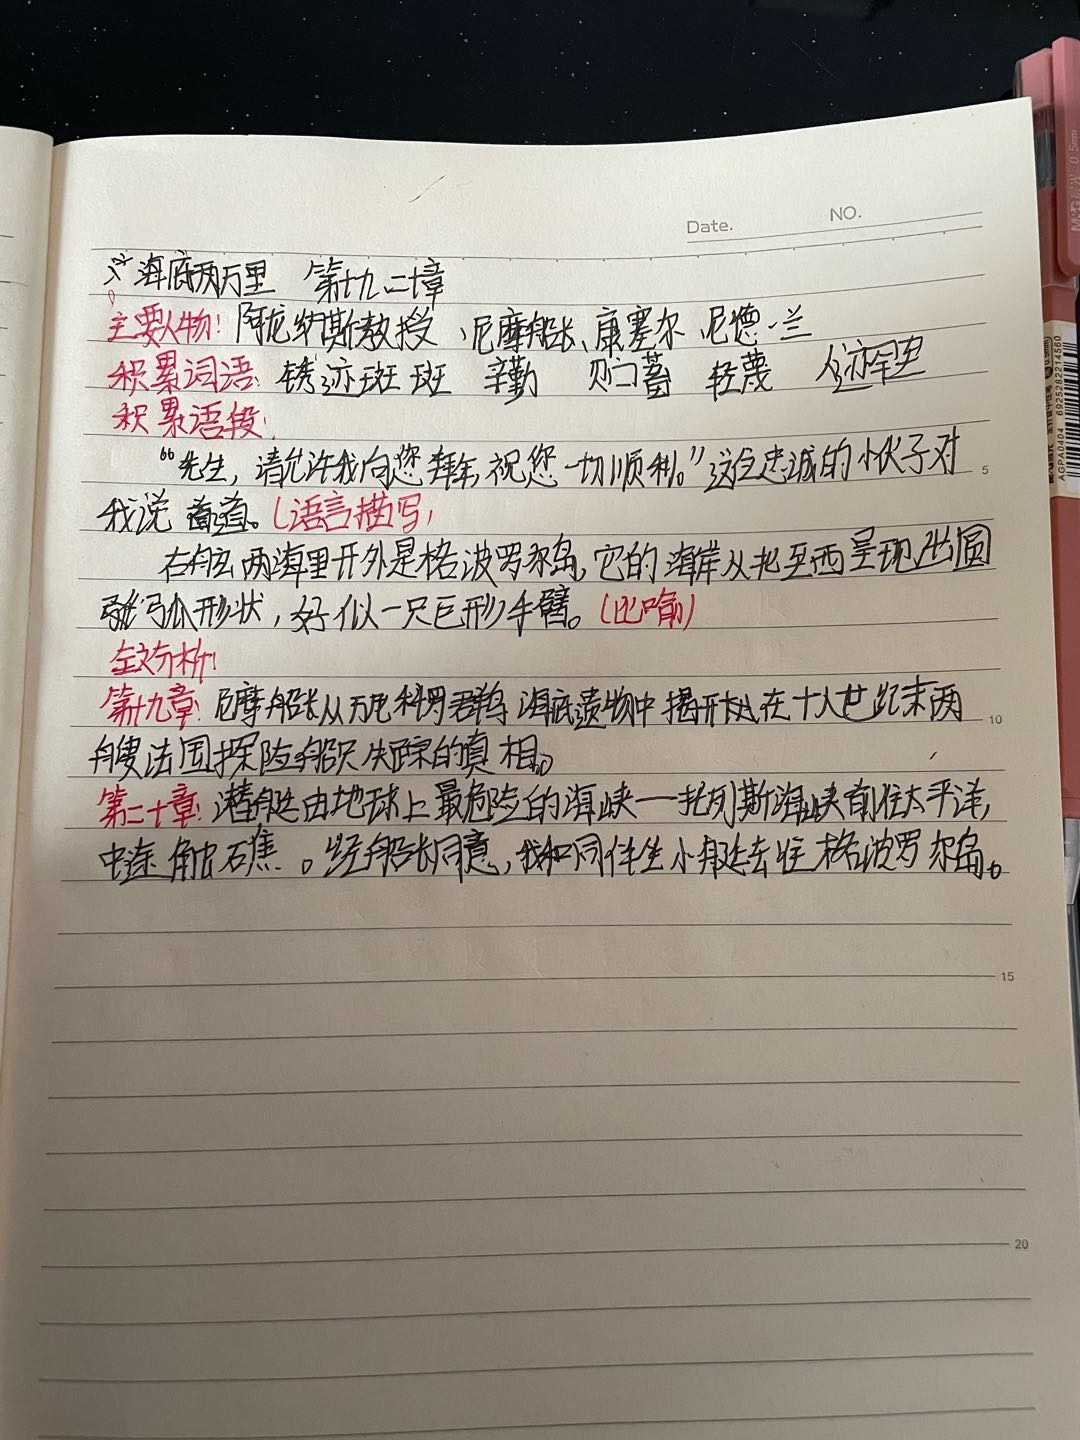 Date.
NO.
海底两万里 第十九、二十章
主要人物：阿龙纳斯教授、尼摩船长、康塞尔、尼德·兰
积累词语：锈迹斑斑 辛勤 贮蓄 轻蔑 人迹罕至
积累语段：
“先生，请允许我向您拜年，祝您一切顺利。”这位忠诚的小伙子对
我说道。（语言描写）
右舷两海里开外是格波罗尔岛，它的海岸从北至西呈现出圆
弧形状，好似一只巨形手臂。（比喻）
全文分析：
第十九章：尼摩船长从瓦尼科罗群岛海底遗物中揭开在十八世纪末两
艘法国探险船只失踪的真相。
第二十章：潜艇由地球上最危险的海峡——托列斯海峡前往太平洋，
中途触石礁。经船长同意，我和同伴坐小艇去往格波罗尔岛。
5
10
15
20
M&G 0.5mm
AGPA0404 6925282214560